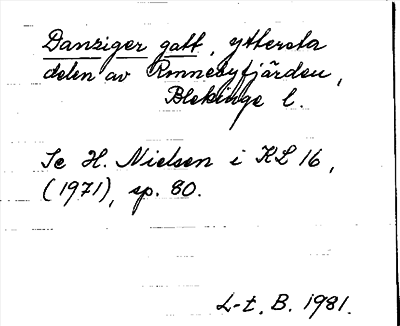 Danziger gatt, yttersta
delen av Ronnebyfjärden,
Blekinge l.
Se H. Nielsen i KL 16,
(1971), sp. 80.
L-t. B. 1981.